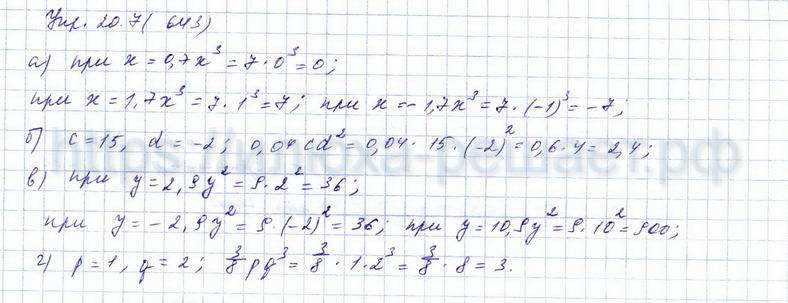 Упр. 20.7 (643)
а) при x = 0, 7x³ = 7 · 0³ = 0;
при x = 1, 7x³ = 7 · 1³ = 7; при x = -1, 7x³ = 7 · (-1)³ = -7;
б) c = 15, d = -2; 0,04 cd² = 0,04 · 15 · (-2)² = 0,6 · 4 = 2,4;
в) при y = 2, 9y² = 9 · 2² = 36;
при y = -2, 9y² = 9 · (-2)² = 36; при y = 10, 9y² = 9 · 10² = 900;
г) p = 1, q = 2; 3/8 pq³ = 3/8 · 1 · 2³ = 3/8 · 8 = 3.